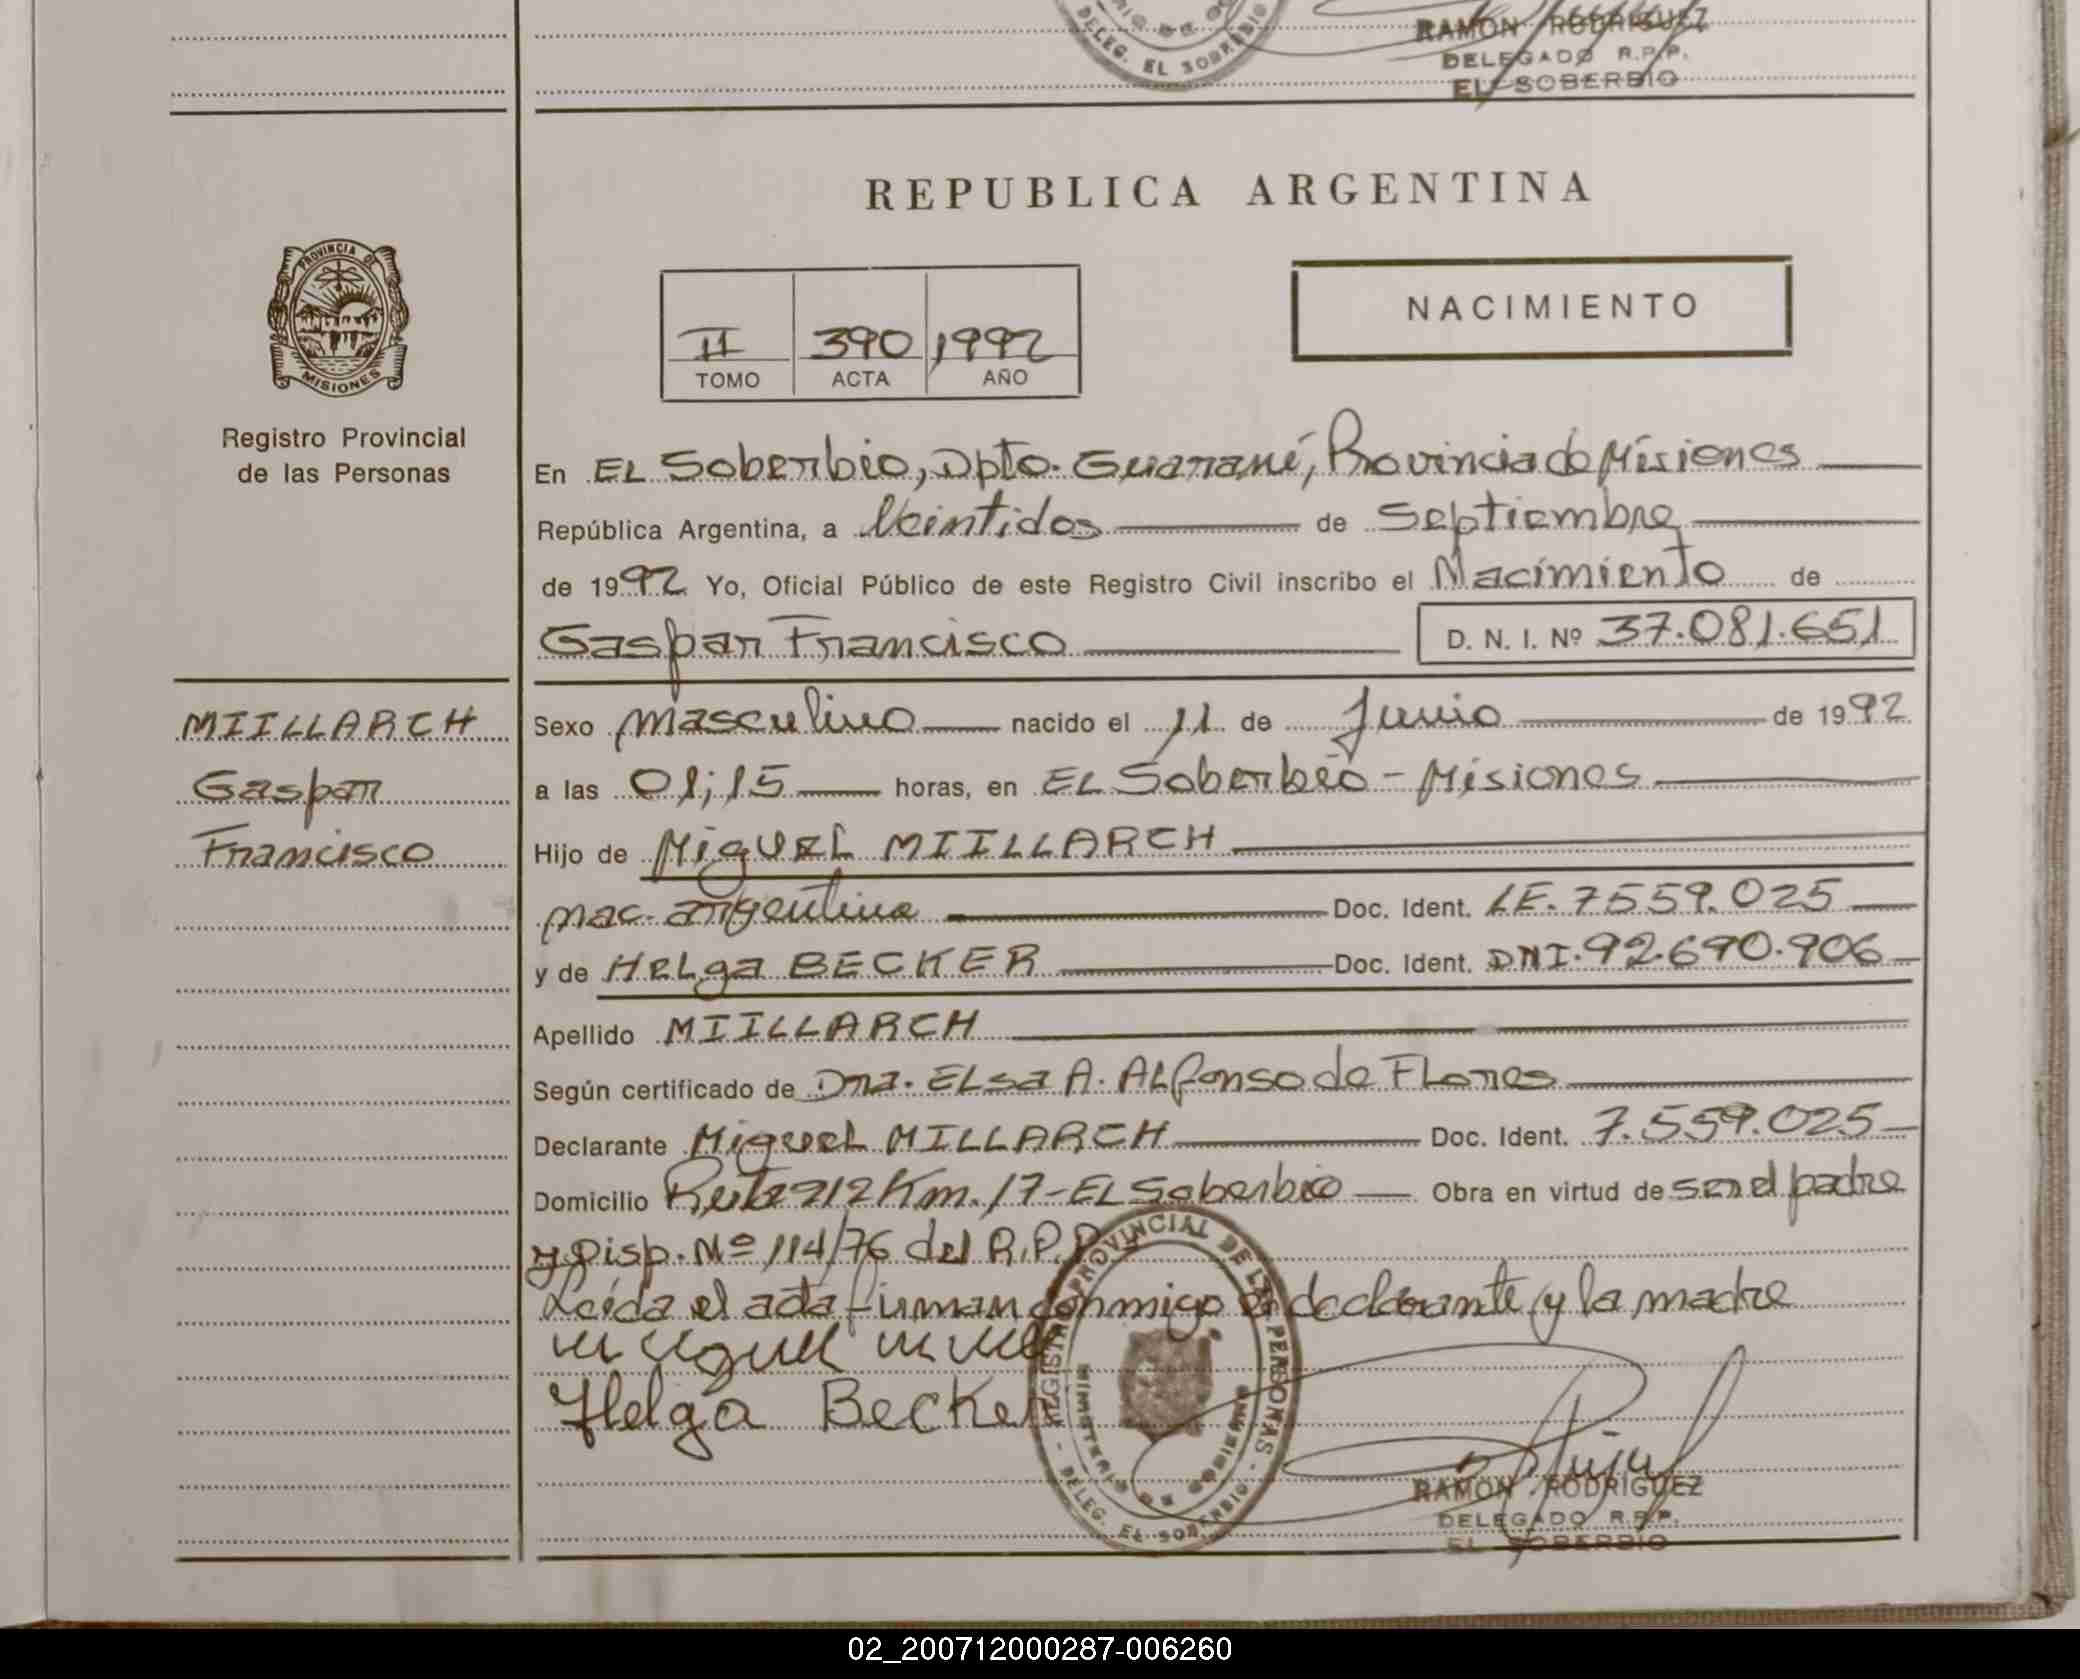 RAMON RODRIGUEZ
DELEGADO R.P.P.
EL SOBERBIO
DELEG. EL SOBERBIO
REPUBLICA ARGENTINA
PROVINCIA DE
MISIONES
Registro Provincial
de las Personas
II 390 1992
TOMO ACTA AÑO
NACIMIENTO
En EL Soberbio, Dpto. Guaraní, Provincia de Misiones
República Argentina, a Veintidos de Septiembre
de 1992 Yo, Oficial Público de este Registro Civil inscribo el Nacimiento de
Gaspar Francisco D. N. I. Nº 37.081.651
MIILLARCH
Gaspar
Francisco
Sexo masculino nacido el 11 de Junio de 1992
a las 01;15 horas, en EL Soberbio - Misiones
Hijo de Miguel MIILLARCH
nac. argentina Doc. Ident. LE. 7559.025
y de Helga BECKER Doc. Ident. DNI. 92.690.906
Apellido MIILLARCH
Según certificado de Dra. Elsa A. Alfonso de Flores
Declarante Miguel MILLARCH Doc. Ident. 7.559.025
Domicilio Ruta 212 Km. 17 - EL Soberbio Obra en virtud de ser el padre
y Disp. Nº 114/76 del R.P.P.
Leída el acta firman conmigo el declarante y la madre
Helga Becker
REGISTRO PROVINCIAL DE LAS PERSONAS
MINISTERIO DE GOBIERNO
- DELEG. EL SOBERBIO -
RAMON RODRIGUEZ
DELEGADO R.P.P.
EL SOBERBIO
02_200712000287-006260